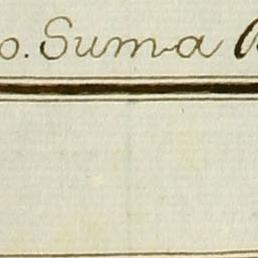 o. Suma